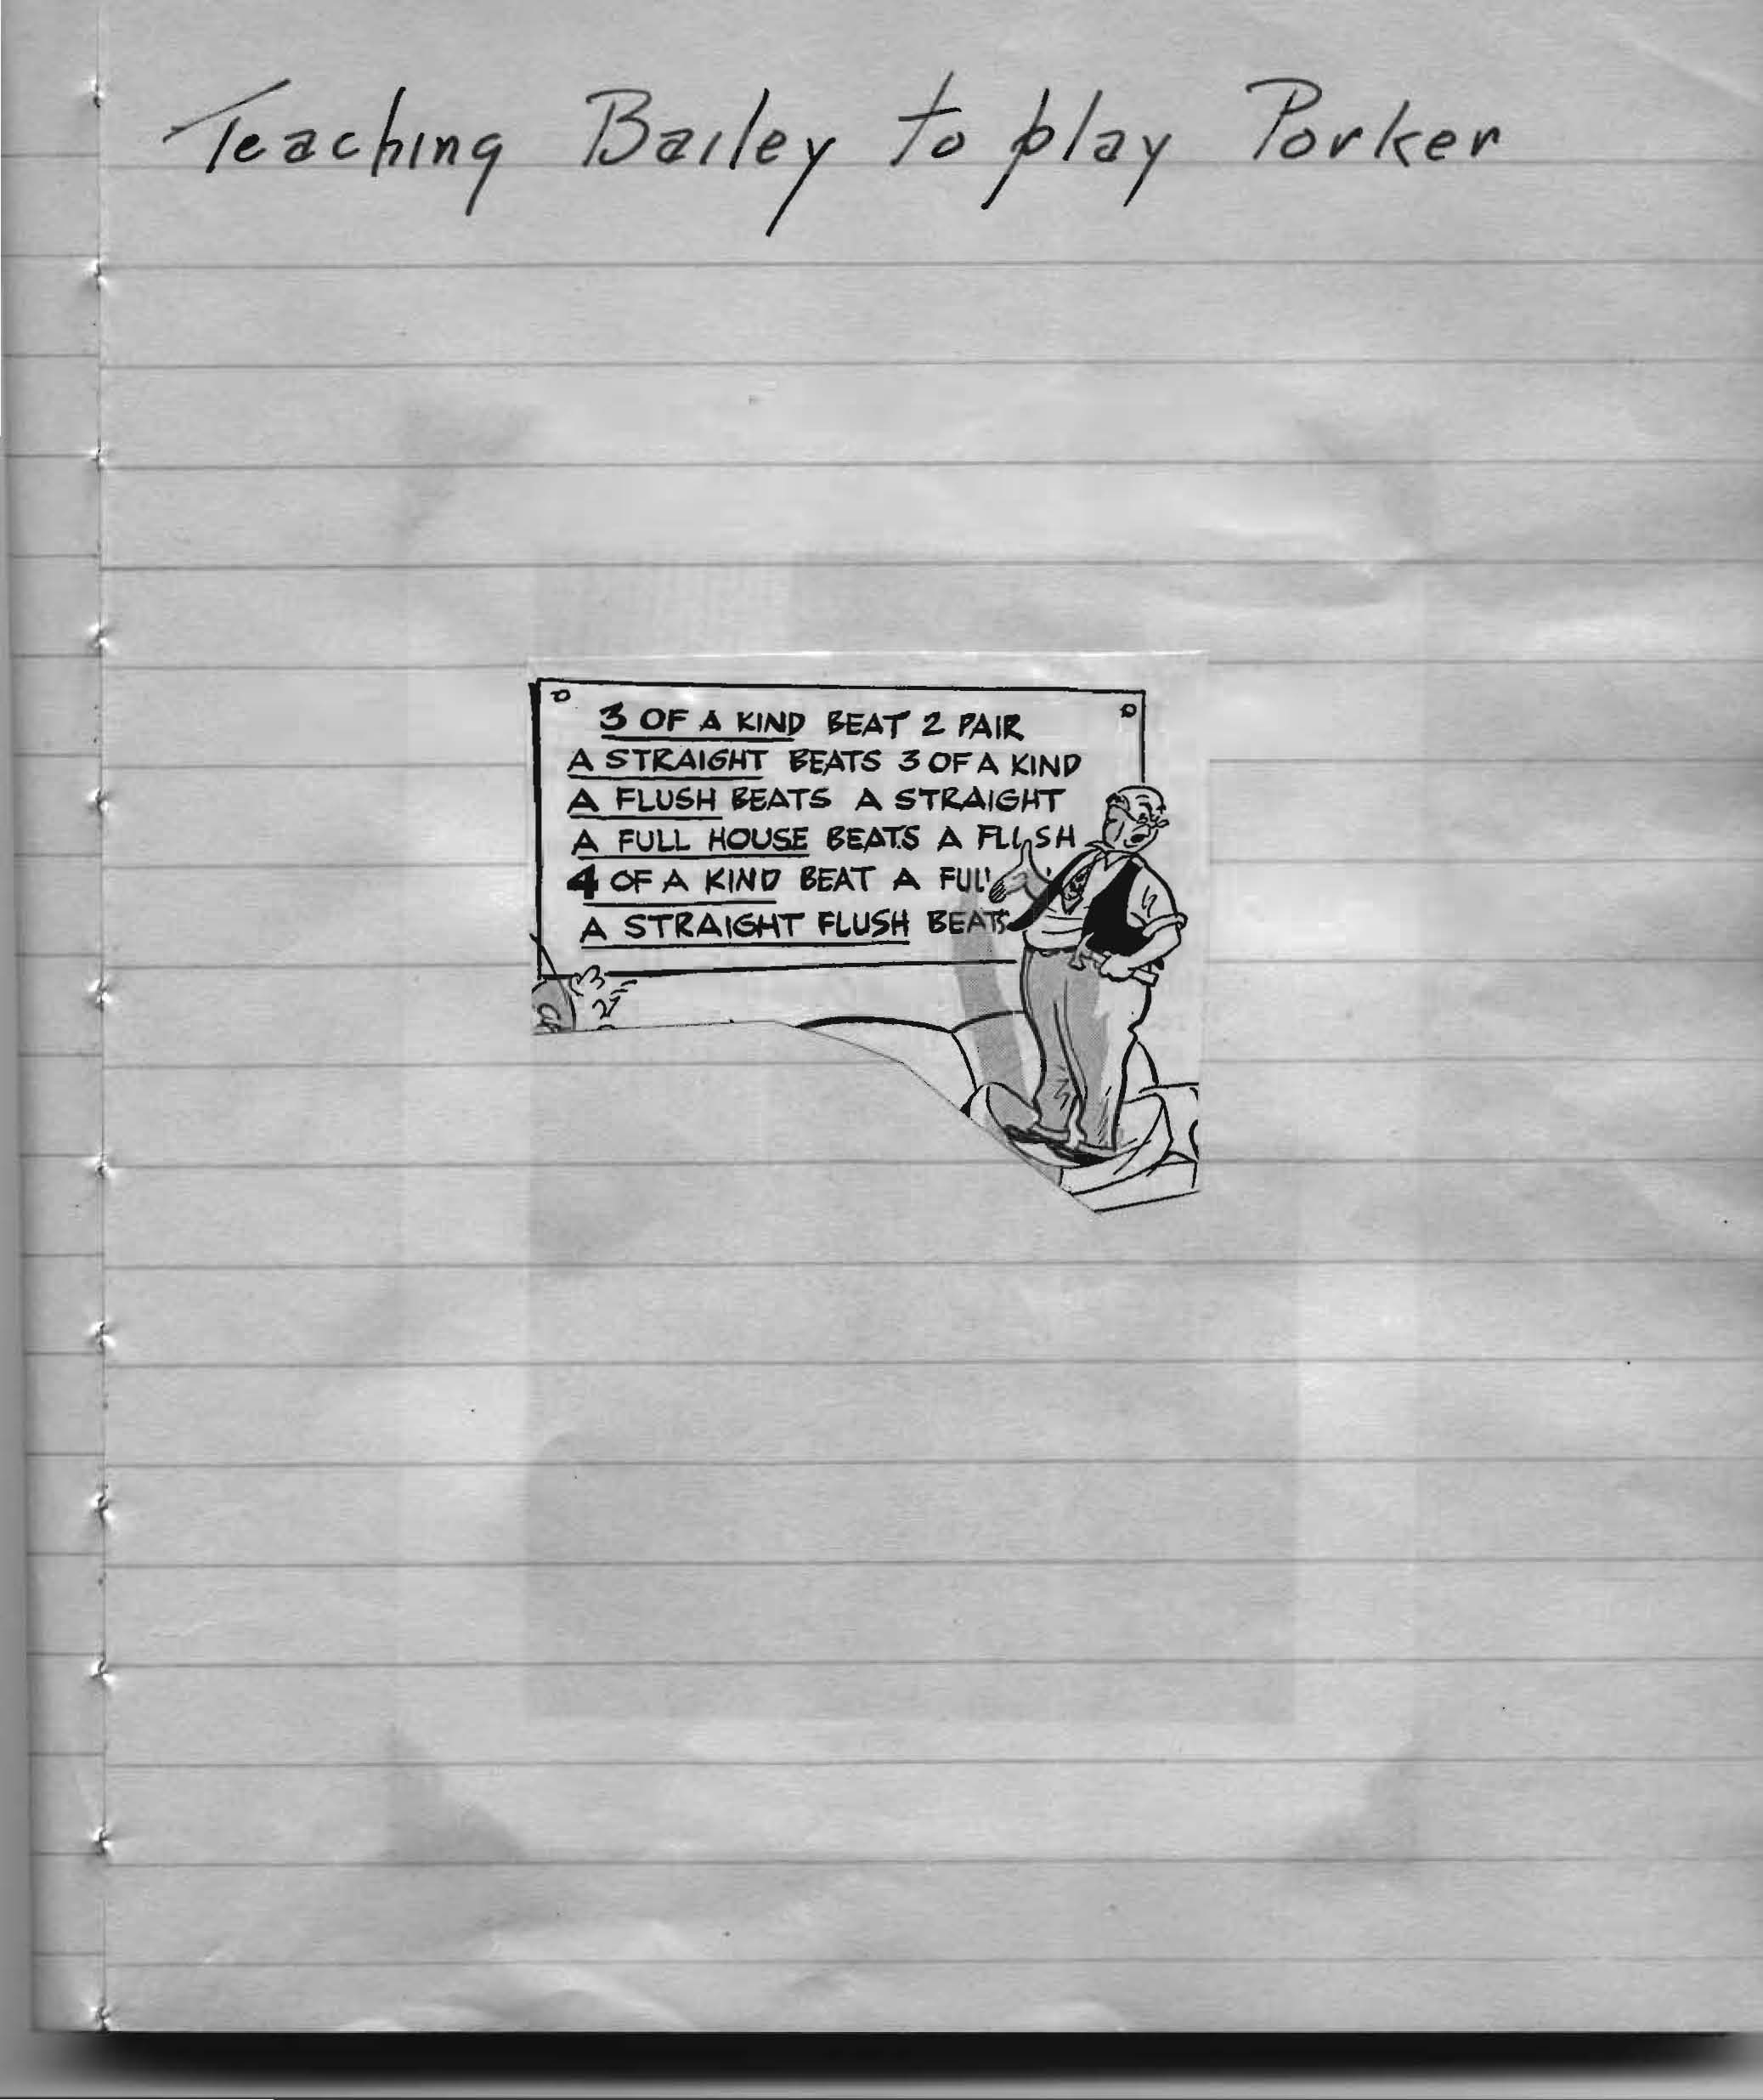 Teaching Bailey to play Porker
3 OF A KIND BEAT 2 PAIR
A STRAIGHT BEATS 3 OF A KIND
A FLUSH BEATS A STRAIGHT
A FULL HOUSE BEATS A FLUSH
4 OF A KIND BEAT A FULL
A STRAIGHT FLUSH BEATS